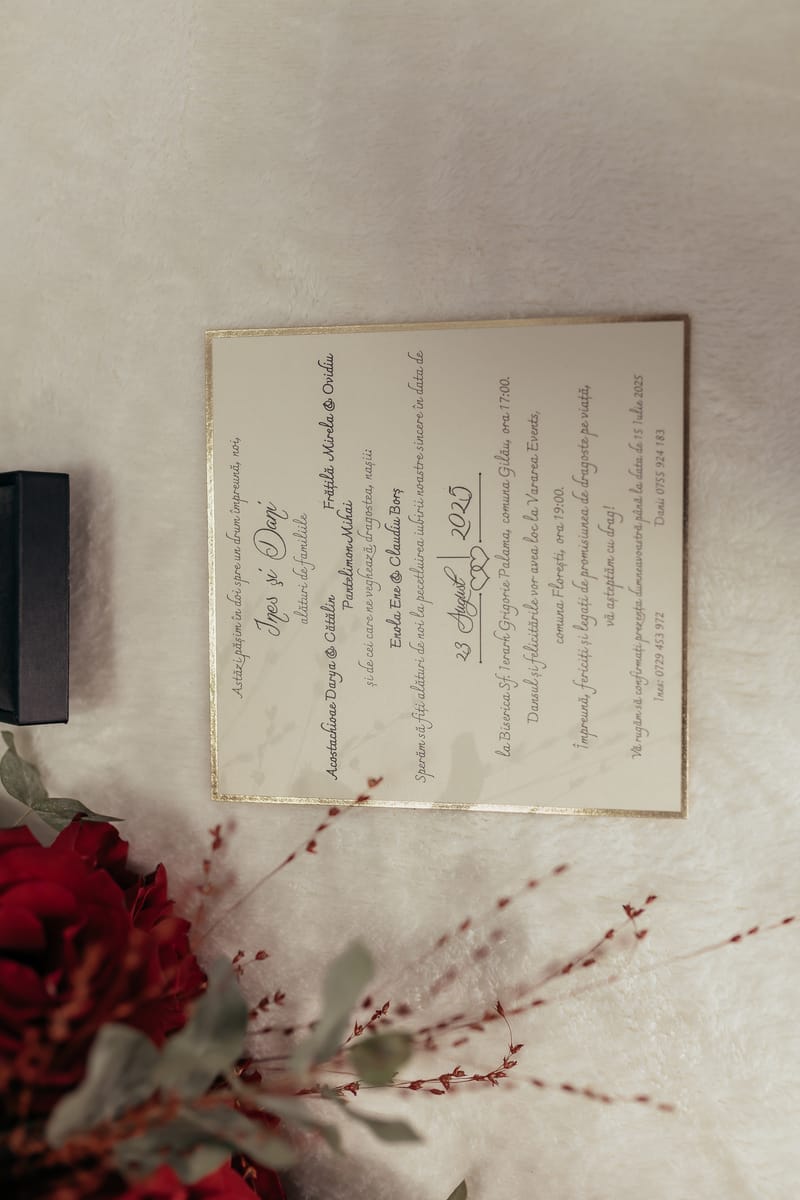 Astăzi pășim în doi spre un drum împreună, noi,
Ines și Dani
alături de familiile
Acostachioae Darya & Cătălin Frățilă Mirela & Ovidiu
Pantelimon Mihai
și de cei care ne veghează dragostea, nașii
Enola Ene & Claudiu Borș
Sperăm să fiți alături de noi la pecetluirea iubirii noastre sincere în data de
23 August 2025
la Biserica Sf. Ierarh Grigorie Palama, comuna Gilău, ora 17:00.
Dansul și felicitările vor avea loc la Vararea Events,
comuna Florești, ora 19:00.
Împreună, fericiți și legați de promisiunea de dragoste pe viață,
vă așteptăm cu drag!
Vă rugăm să confirmați prezența dumneavoastră până la data de 15 Iulie 2025
Ines: 0729 453 972 Dani: 0755 924 183